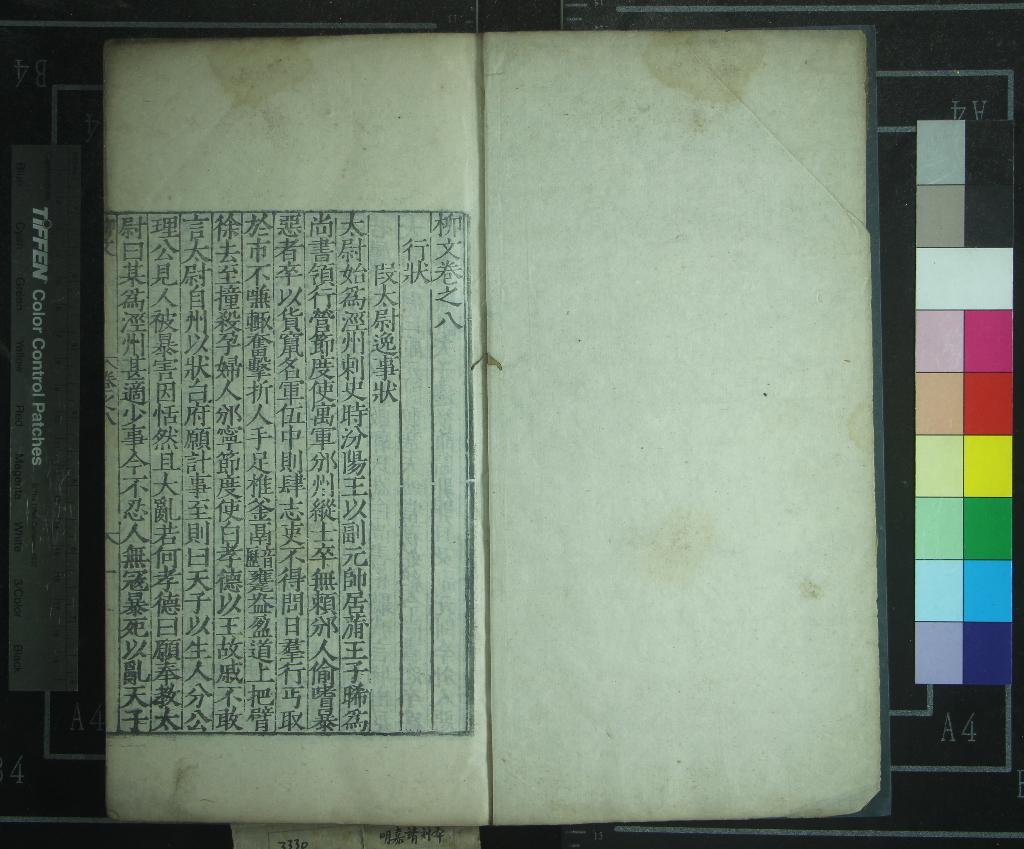 柳文卷之八
行狀
段太尉逸事狀
太尉始爲涇州刺史時汾陽王以副元帥居蒲王子晞爲
尚書領行營節度使寓軍邠州縱士卒無賴邠人偷嗜暴
惡者卒以貨竄名軍伍中則肆志吏不得問日羣行丐取
於市不嗛輙奮擊折人手足椎釜鬲甕盎盈道上把臂
徐去至撞殺孕婦人邠寧節度使白孝德以王故戚不敢
言太尉自州以狀白府願計事至則曰天子以生人分公
理公見人被暴害因恬然且大亂若何孝德曰願奉教太
尉曰某爲涇州甚適少事今不忍人無寇暴死以亂天子
卷之八
一
TIFFEN Color Control Patches
Blue
Cyan
Green
Yellow
Red
Magenta
White
3/Color
Black
B4
A4
A4
A4
A4
B4
15
3330
明嘉靖刻本